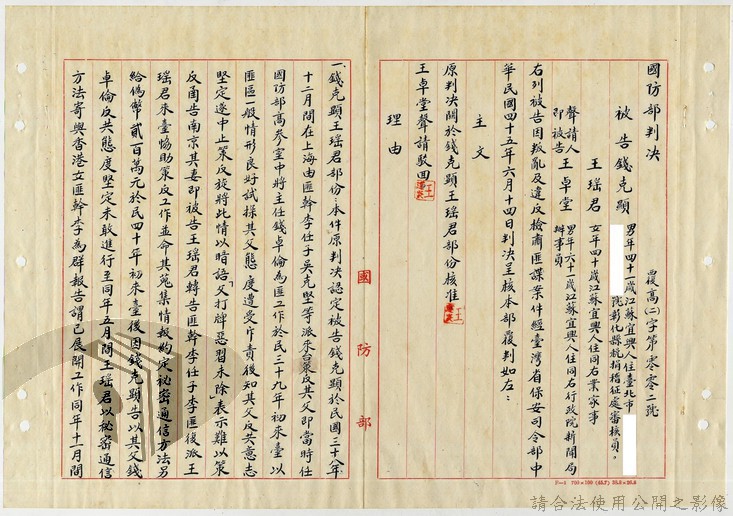 國防部判決
覆高(二)字第零零二號
被告錢克顯
男年四十一歲江蘇宜興人住臺北市
彰化縣稅捐稽征處審核員。
王瑤君 女年四十歲江蘇宜興人住同右業家事
聲請人
即被告
王卓堂
男年六十一歲江蘇宜興人住同右行政院新聞局
辦事員
右列被告因叛亂及違反檢肅匪諜案件經臺灣省保安司令部中
華民國四十五年六月十四日判決呈核本部覆判如左：
主文
原判決關於錢克顯王瑤君部份核准
王卓堂聲請駁回
理由
一、錢克顯王瑤君部份：本件原判決認定被告錢克顯於民國三十八年
十二月間在上海由匪幹李仕子吳克堅等派來台策反其父即當時任
國防部高參室中將主任錢卓倫為匪工作於民三十九年初來臺以
匪區一般情形良好試探其父態度遭受斥責後知其父反共意志
堅定遂中止策反旋將此情以暗語「父打牌惡習未除」表示難以策
反函告南京其妻即被告王瑤君轉告匪幹李仕子李匪後派王
瑤君來臺協助策反工作並命其蒐集情報約定秘密通信方法另
給偽幣貳百萬元於民四十年初來臺後因錢克顯告以其父錢
卓倫反共態度堅定未敢進行至同年五月間王瑤君以秘密通信
方法寄與香港女匪幹李為群報告謂已展開工作同年十一月間
國防部
請合法使用公開之影像